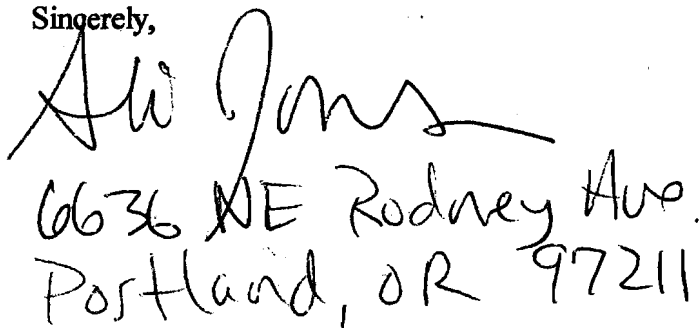 Sincerely,
6636 NE Rodney Ave.
Portland, OR 97211